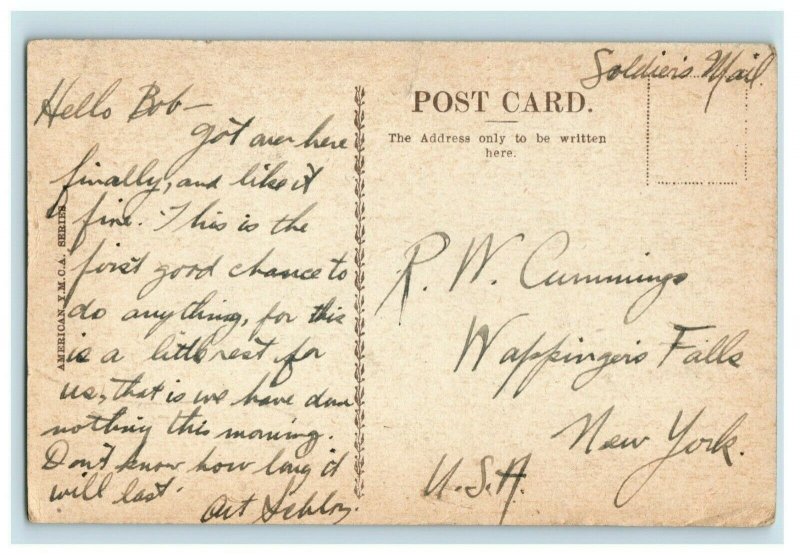 Soldier's Mail.
POST CARD.
The Address only to be written
here.
AMERICAN Y.M.C.A. SERIES
Hello Bob—
Got over here
finally, and like it
fine. This is the
first good chance to
do anything, for this
is a little rest for
us, that is we have done
nothing this morning.
Don't know how long it
will last.
Art
R. W. Cummings
Wappingers Falls
New York.
U.S.A.